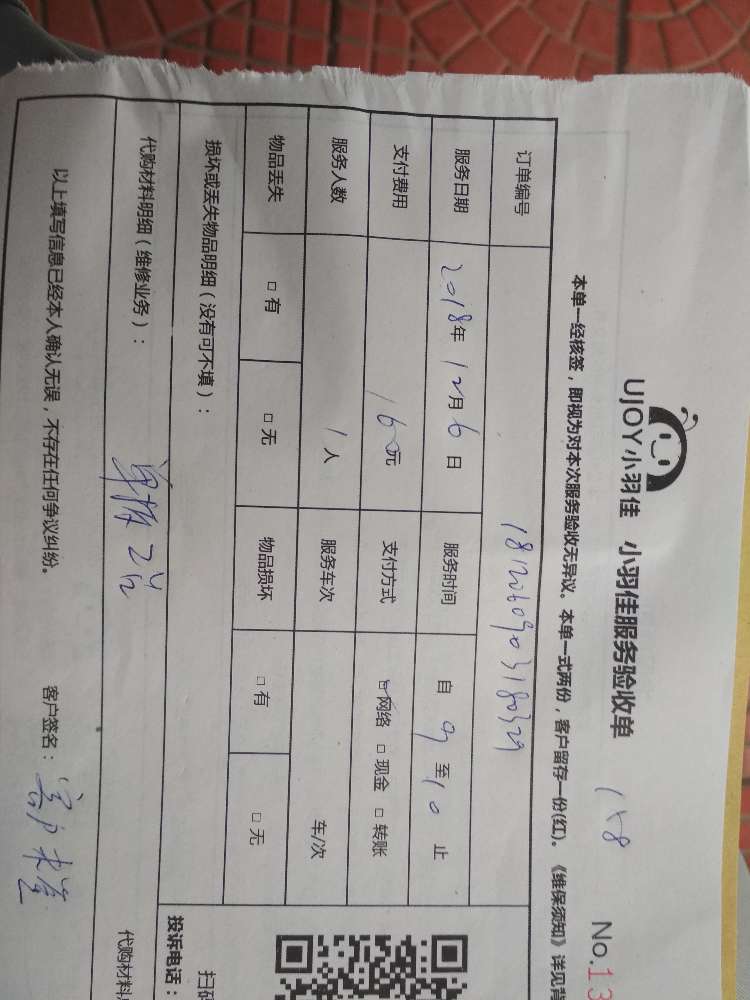 UJOY小羽佳 小羽佳服务验收单 158 No.13
本单一经核签，即视为对本次服务验收无异议。本单一式两份，客户留存一份(红)。《维保须知》详见背
订单编号
服务日期 2018年12月6日 服务时间 自 9 至 10 止
支付费用 160元 支付方式 网络 □现金 □转账
服务人数 1人 服务车次 车/次
物品丢失 □有 □无 物品损坏 □有 □无
损坏或丢失物品明细（没有可不填）：
投诉电话：
扫码
代购材料明细（维修业务）：
代购材料
以上填写信息已经本人确认无误，不存在任何争议纠纷。 客户签名：